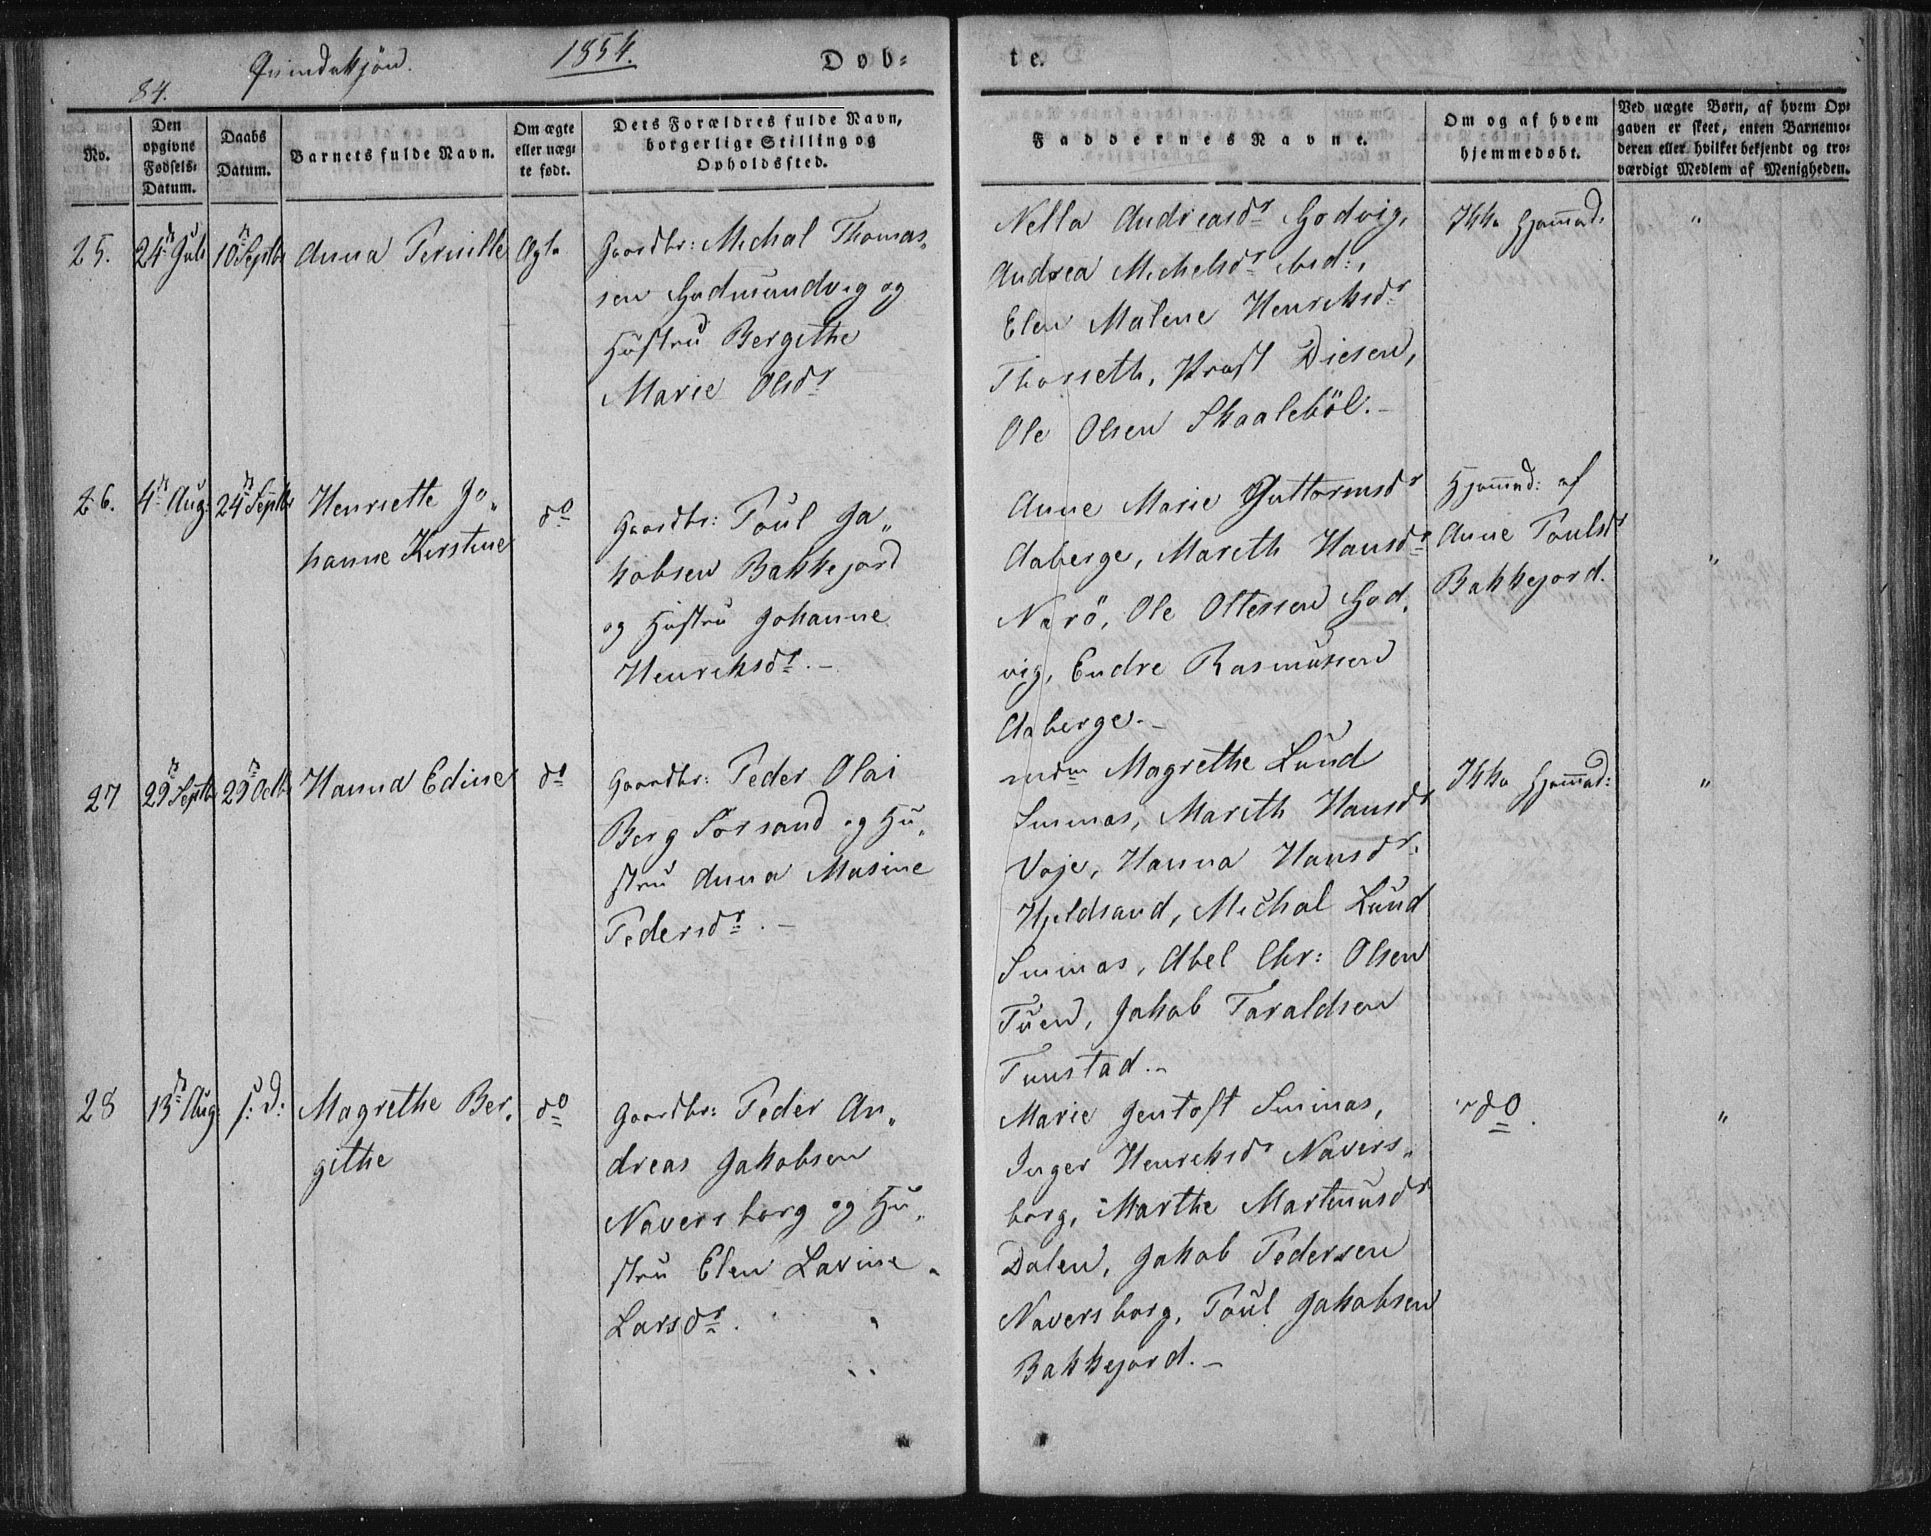 84. Qvindekjön. 1854. Døb-
te.
No.
Den opgivne Fødsels-Datum.
Daabs Datum.
Barnets fulde Navn.
Om ægte eller uægte født.
Dets Forældres fulde Navn, borgerlige Stilling og Opholdssted.
Faddernes Navne.
Om og af hvem hjemmedøbt.
Ved uægte Børn, af hvem Opgaven er skeet, enten Barnemoderen eller hvilket bekjendt og troværdigt Medlem af Menigheden.
25. 24d Juli 10d Septbr Anna Pernille Ægte
Gaardbr: Michal Thomas-
sen Gudmundvig og
Hustru Bergithe
Marie Olsdr
Nella Andreasdr Godvig,
Andrea Michelsdr ibid:,
Elen Malene Henriksdr
Thorseth, Provst Diesen,
Ole Olsen Skaaleböl.-
Ikke Hjemmed: "
26. 4d Aug: 24d Septbr Henriette Jo-
hanne Kirstine
do
Gaardbr: Poul Ja-
kobsen Bakkejord
og Hustru Johanne
Henriksdr.-
Anne Marie Guttormsdr
Aaberge, Mareth Hansdr
Narö, Ole Ottessen God-
vig, Endre Rasmussen
Aaberge.-
Hjemmed: af
Anne Poulsdr
Bakkejord.
"
27 29d Septbr 29d Octbr Hanna Edine do
Gaardbr: Peder Olai
Berg Forsand og Hu-
stru Anna Masine
Pedersdr.-
mdm Magrethe Lund
Smines, Mareth Hansdr
Voje, Hanna Hansdr.
Hjeldsand, Michal Lund
Smines, Abel Chr: Olsen
Tuen, Jakob Taraldsen
Tunstad.-
Ikke Hjemmed: "
28 13d Aug: s: D: Magrethe Ber-
githe
do
Gaardbr: Peder An-
dreas Jakobsen
Naversborg og Hu-
stru Elen Lavine
Larsdr.
Marie Jentoft Smines,
Inger Henriksdr Navers-
borg, Marthe Martinusdr
Dalen, Jakob Pedersen
Naversborg, Poul Jakobsen
Bakkejord.-
do. "